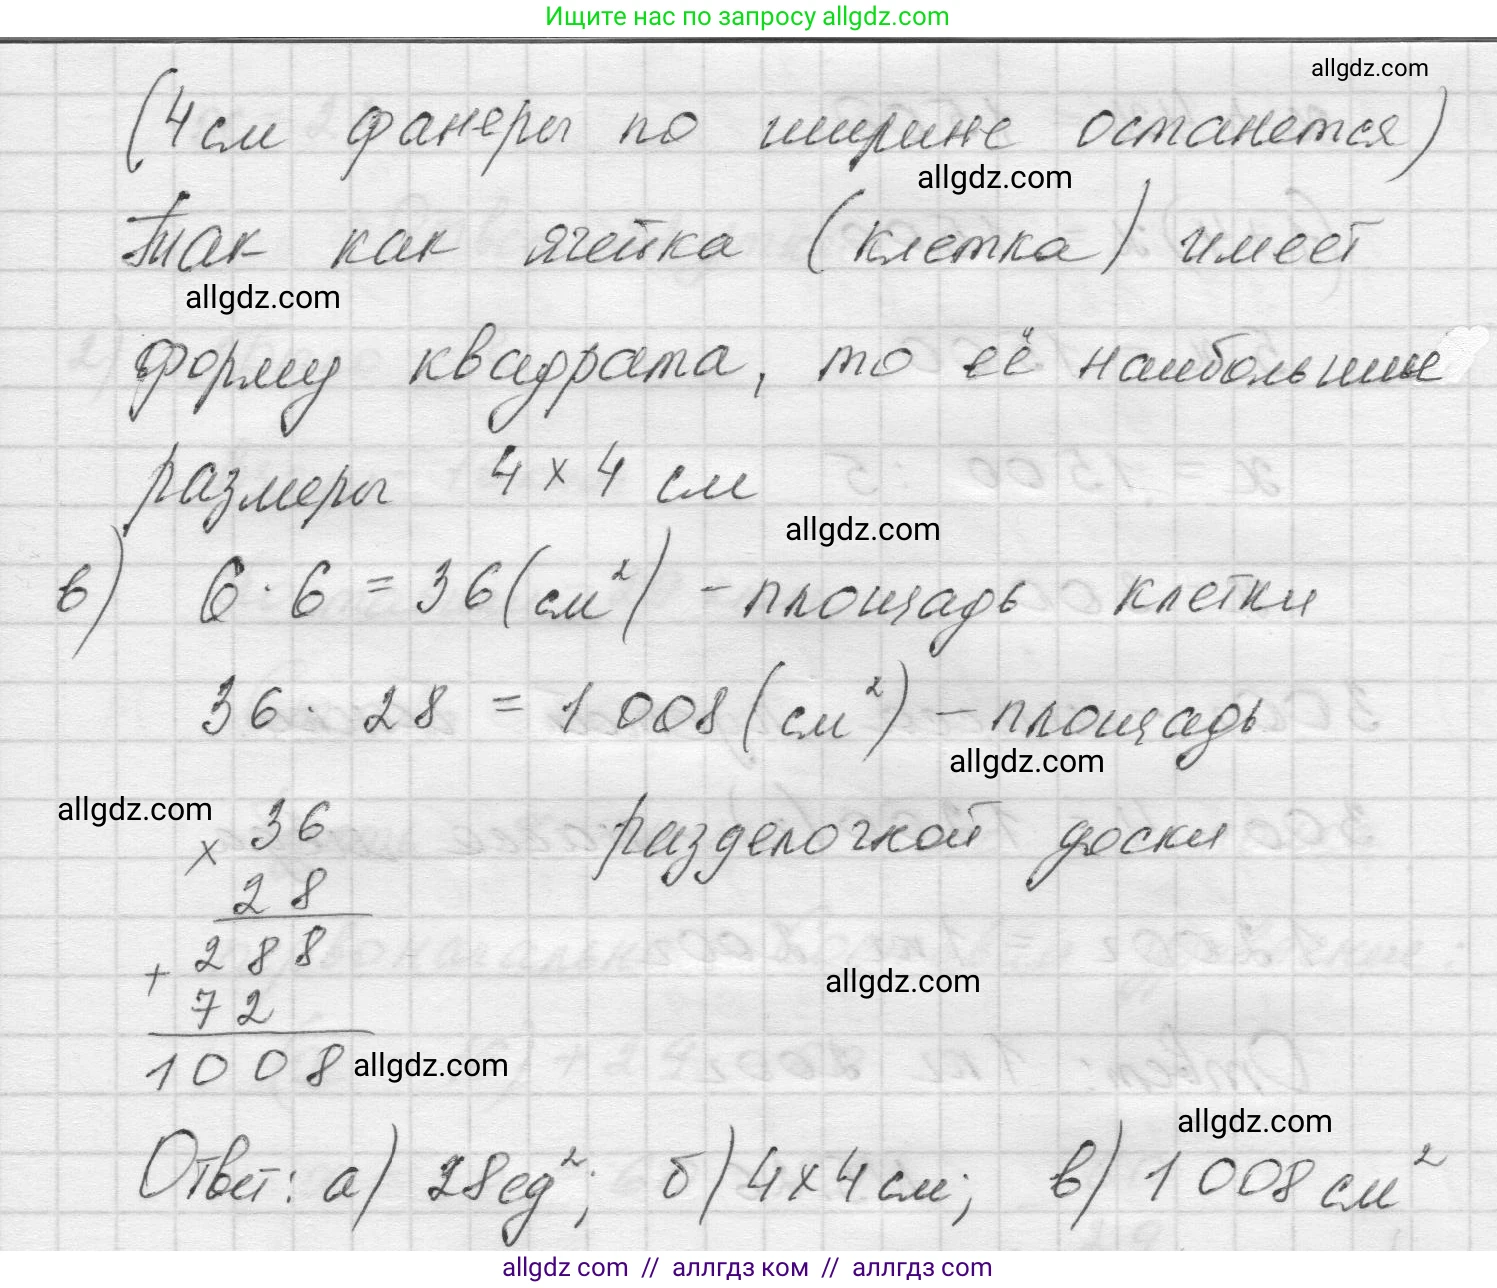 Ищите нас по запросу allgdz.com
allgdz.com
(4 см фанеры по ширине останется)
allgdz.com
Так как ячейка (клетка) имеет
allgdz.com
форму квадрата, то её наибольшие
размеры 4 × 4 см
allgdz.com
в) 6 · 6 = 36 (см²) – площадь клетки
36 · 28 = 1 008 (см²) – площадь
allgdz.com
allgdz.com
× 36
разделочной доски
28
+ 288
allgdz.com
72
1008
allgdz.com
allgdz.com
Ответ: а) 28 ед²; б) 4 × 4 см; в) 1 008 см²
allgdz.com // аллгдз ком // аллгдз com